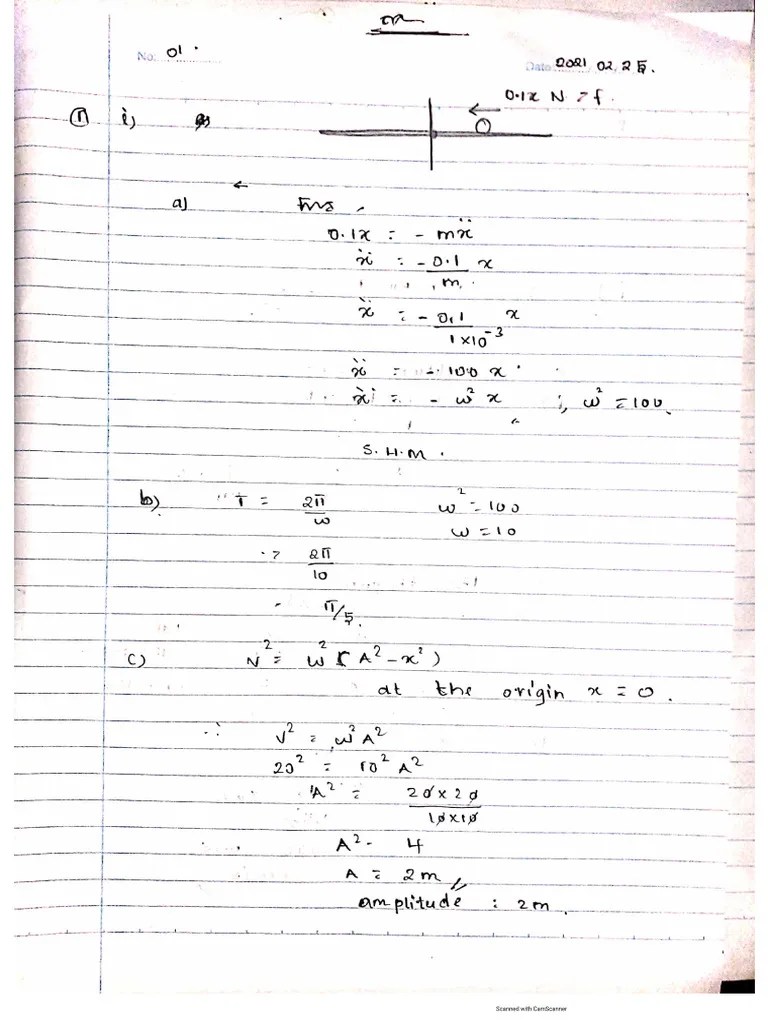 No: 01.
Date: 2021.02.25.
0.1x N = f.
① i)
←
a) F=ma
0.1x = - mẍ
ẍ = -0.1/m x
ẍ = -0.1/1×10⁻³ x
ẍ = -100 x
ẍ = - ω² x ; ω² = 100.
S.H.M.
b) T = 2π/ω ω² = 100
ω = 10
= 2π/10
= π/5.
c) V² = ω² (A² - x²)
at the origin x = 0.
∴ V² = ω² A²
20² = 10² A²
A² = 20×20/10×10
A² = 4
A = 2m
amplitude = 2m.
Scanned with CamScanner